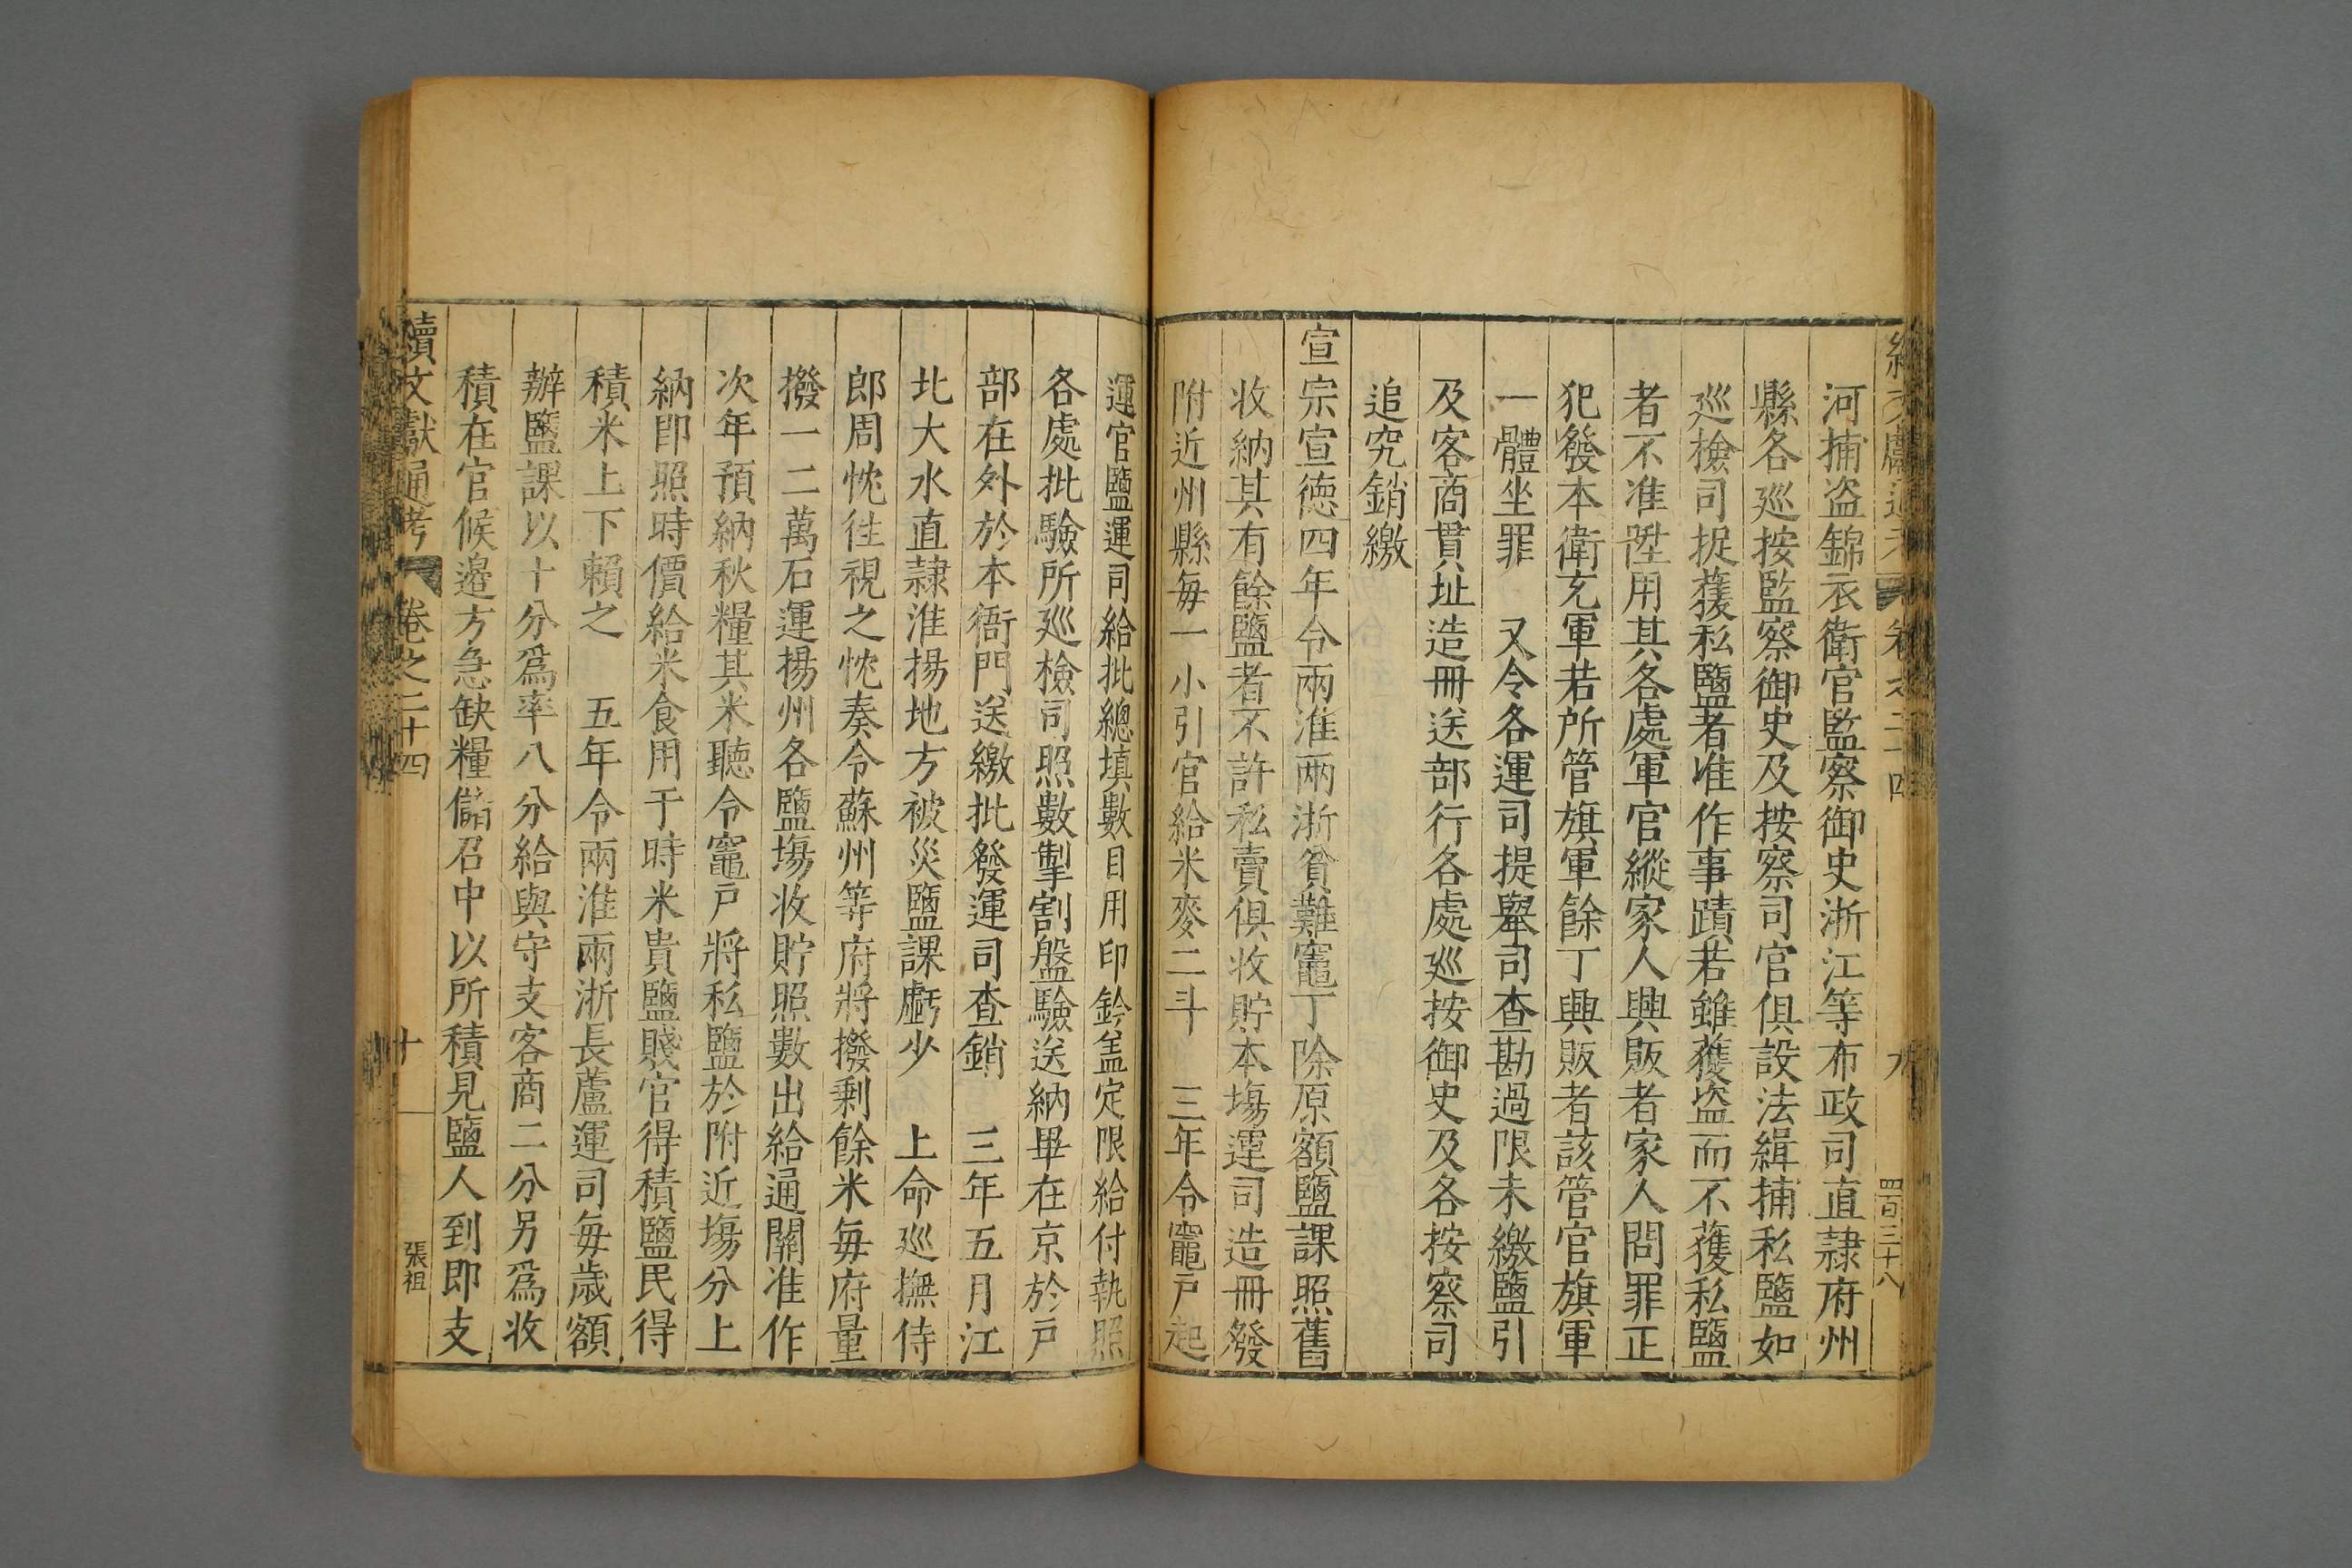 卷之二十四
九
四百三十八
河捕盗錦衣衛官監察御史浙江等布政司直隷府州
縣各廵按監察御史及按察司官俱設法緝捕私鹽如
廵檢司捉獲私鹽者准作事蹟若雖獲盗而不獲私鹽
者不准陞用其各處軍官縱家人興販者家人問罪正
犯發本衛充軍若所管旗軍餘丁興販者該管官旗軍
一體坐罪　又令各運司提舉司查勘過限未繳鹽引
及客商貫址造冊送部行各處廵按御史及各按察司
追究銷繳
宣宗宣德四年令兩淮兩浙貧難竈丁除原額鹽課照舊
收納其有餘鹽者不許私賣俱收貯本塲運司造冊發
附近州縣毎一小引官給米麥二斗　三年令竈戶起
運官鹽運司給批總填數目用印鈐盖定限給付執照
各處批驗所廵檢司照數掣割盤驗送納畢在京於戸
部在外於本衙門送繳批發運司查銷　三年五月江
北大水直隷淮揚地方被災鹽課虧少　上命廵撫侍
郎周忱徃視之忱奏令蘇州等府將撥剩餘米毎府量
撥一二萬石運揚州各鹽塲收貯照數出給通關准作
次年預納秋糧其米聽令竈戸將私鹽於附近塲分上
納即照時價給米食用于時米貴鹽賤官得積鹽民得
積米上下賴之　五年令兩淮兩浙長蘆運司毎歲額
辦鹽課以十分爲率八分給與守支客商二分另爲收
積在官候邉方急缺糧儲召中以所積見鹽人到即支
續文獻通考
卷之二十四
十
張祖